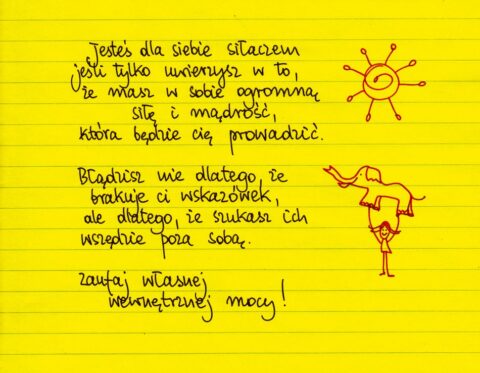 Jesteś dla siebie siłaczem
jeśli tylko uwierzysz w to,
że masz w sobie ogromną
siłę i mądrość,
która będzie cię prowadzić.
Błądzisz nie dlatego, że
brakuje ci wskazówek,
ale dlatego, że szukasz ich
wszędzie poza sobą.
Zaufaj własnej
wewnętrznej mocy!